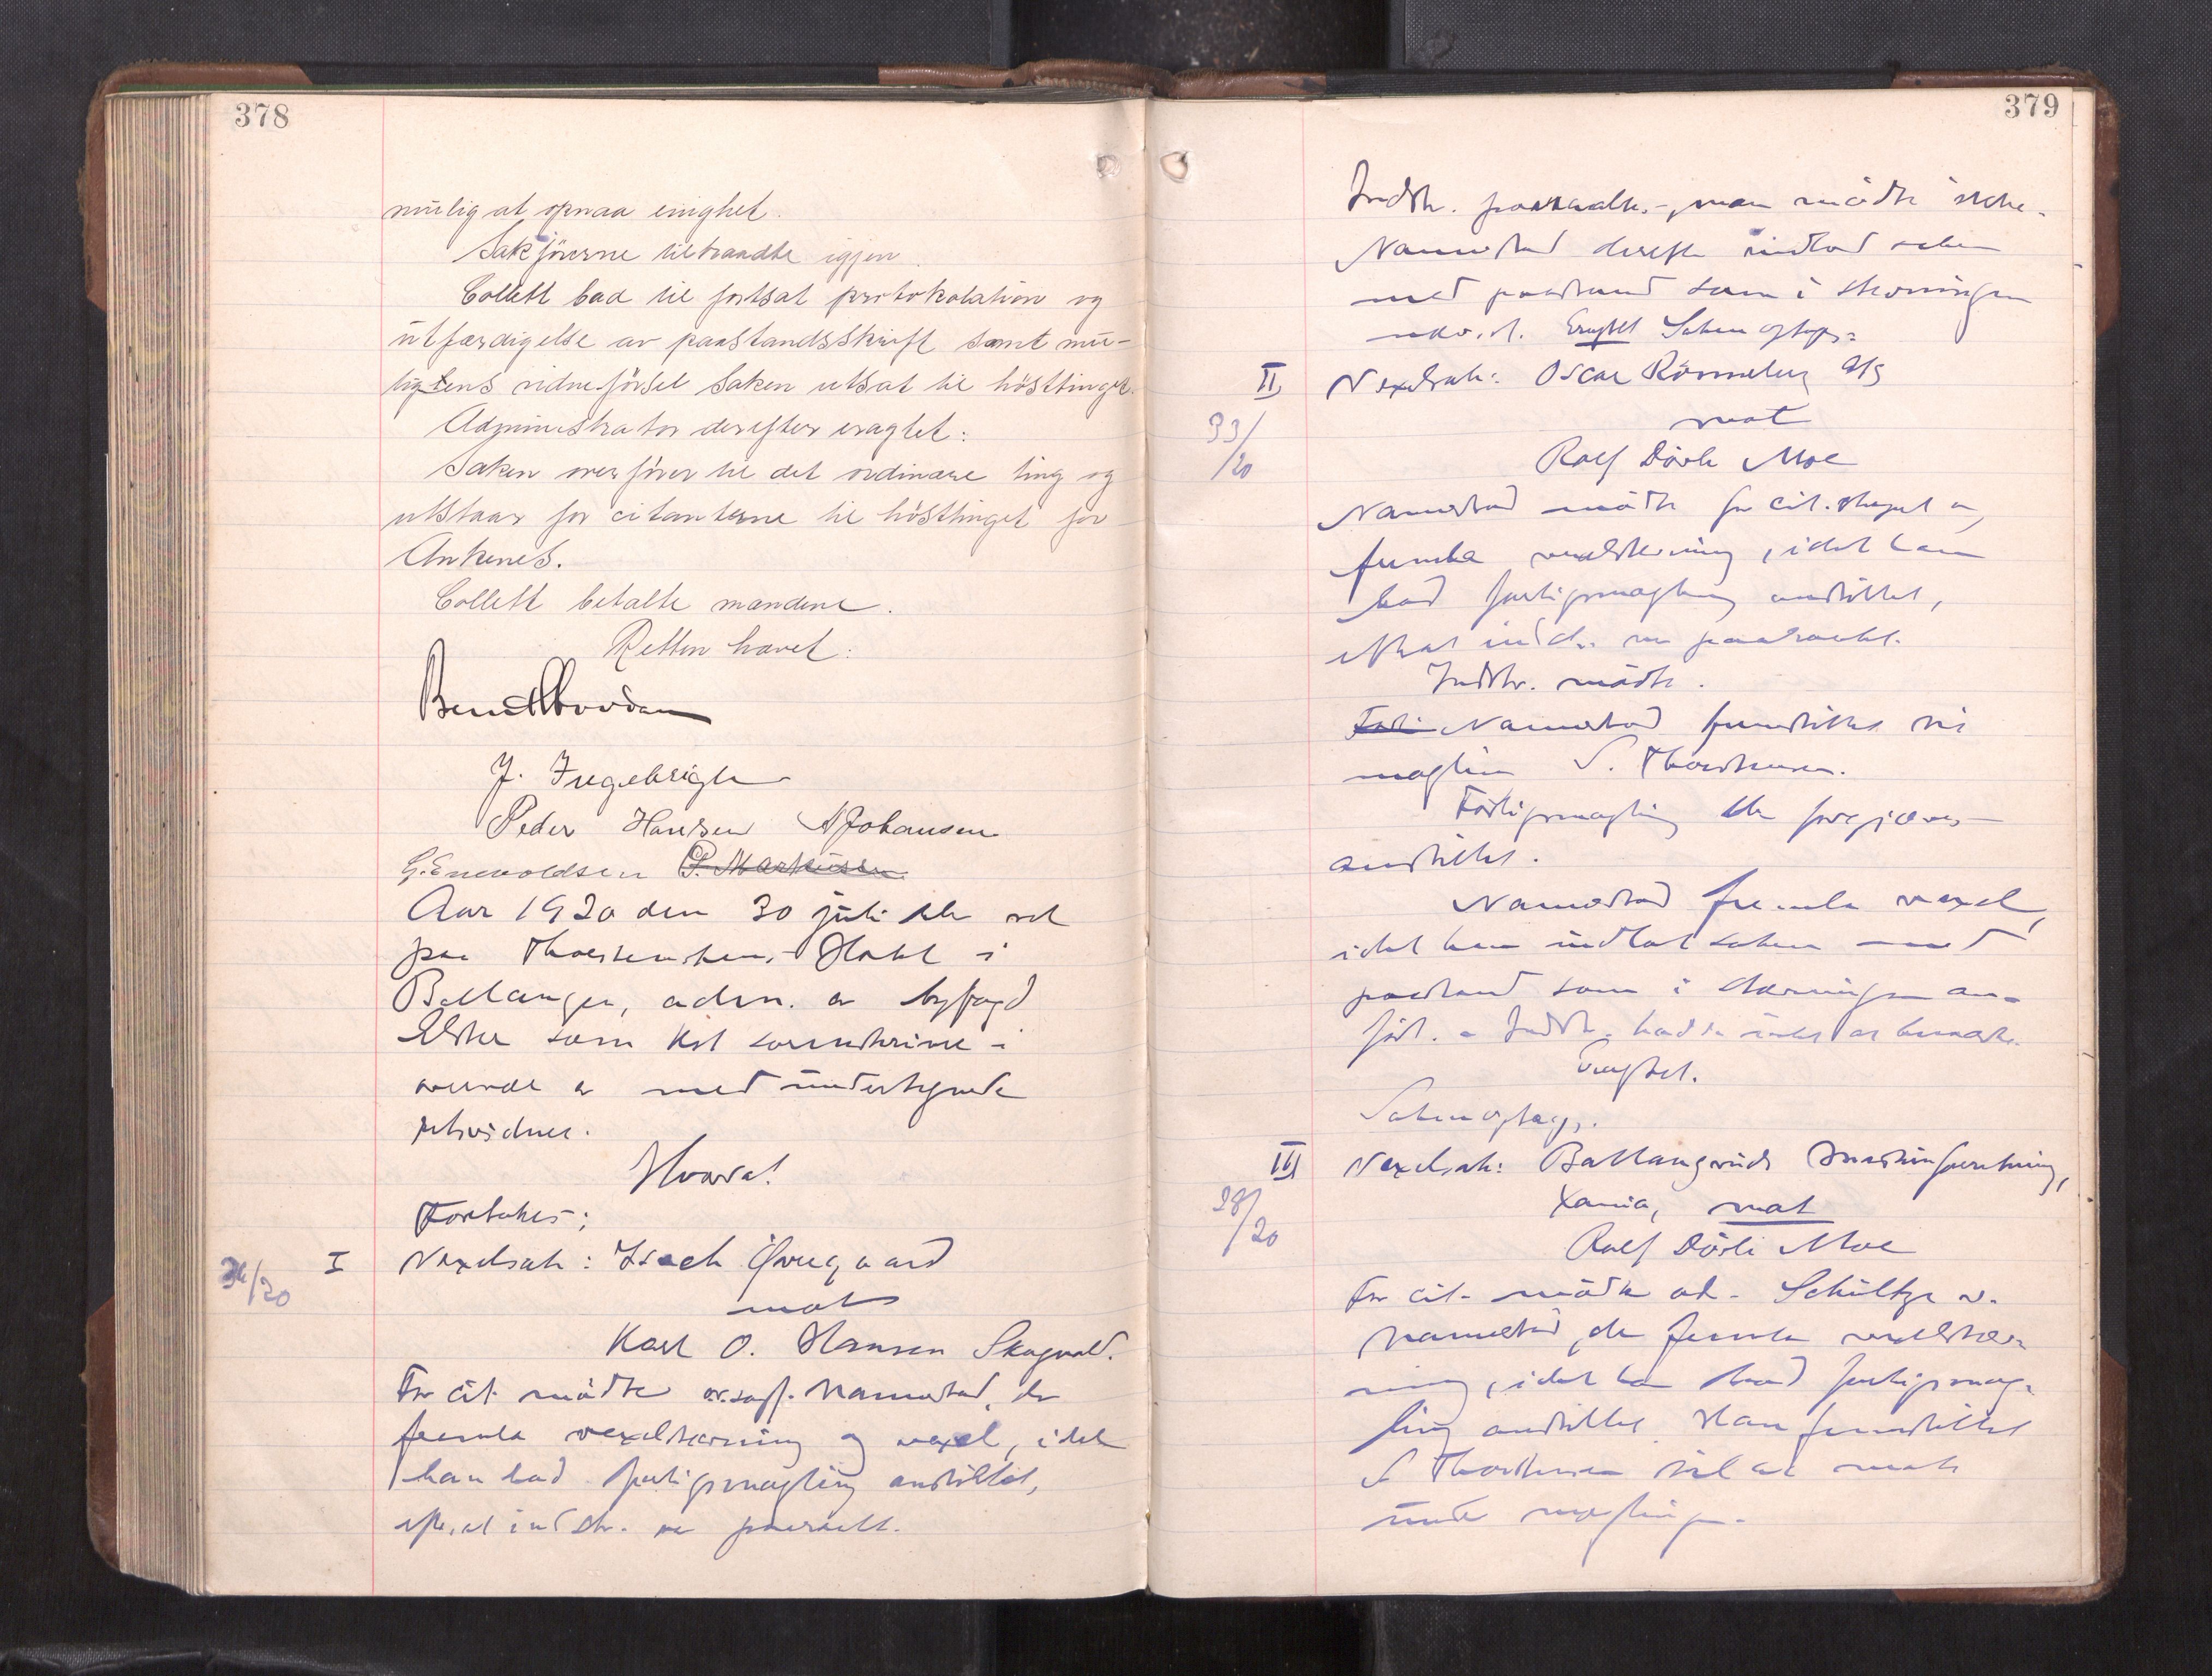 378
mulig at opnaa enighet.
Sakførerne tiltraadte igjen.
Collett bad til fortsat protokolation og
utfærdigelse av paastandsskrift samt mu-
ligens vidneførsel saken utsat til høsttinget.
Administrator derefter eragtet:
Saken overføres til det ordinære ting og
utstaar for citanterne til høsttinget for
Ankenes.
Collett betalte mændene.
Retten hævet:
J. Ingebrigtsen
Peder Hansen A Johansen
G. Enevoldsen P. Markussen
Aar 1920 den 30 juli blev ret
paa Thorstensens Hotel i
Ballangen, adm. av byfogd
som kst sorenskriver i
med undertegnede
retsvidner.
Hvorda!
Foretokes:
I Vexelsak: Isach Østegaard
36/20
mot
Karl O. Hansen Skogvold.
For cit. møtte o.r.sagf. Namestad, der
fremla vexelstevning og vexel, idet
han bad forligsmægling anstillet,
efterat indst. var paaraabt.
379
Indst. paaraabtes, men møtte ikke.
Namestad derefter indlod saken
med paastand som i stevningen
Eragtet Saken optages
II Vexelsak: Oscar Rønneberg A/S
33/20
mot
Rolf Dørli Moe
Namestad møtte for cit.
fremla vexelstevning, idet han
bad forligsmægling anstillet,
efterat indst. var paaraabt.
Indstv. møtte.
Namestad fremstilles til
mægling S. Thorstensen.
Forligsmægling blev forgjæves
anstillet.
Namestad fremla vexel,
idet han indlot saken med
paastand som i stevningen an-
ført. Indst. hadde intet at bemerke.
Eragtet.
Saken optages.
III Vexelsak: Ballangruds Maskinforretning,
28/20
Xania, mot
Rolf Dørli Moe
For cit. møtte ad. Schultze v.
Namestad, der fremla vexelstev-
ning, idet han bad forligsmæg-
ling anstillet. Han fremstillet
S Thorstensen til at møte
under mæglingen.